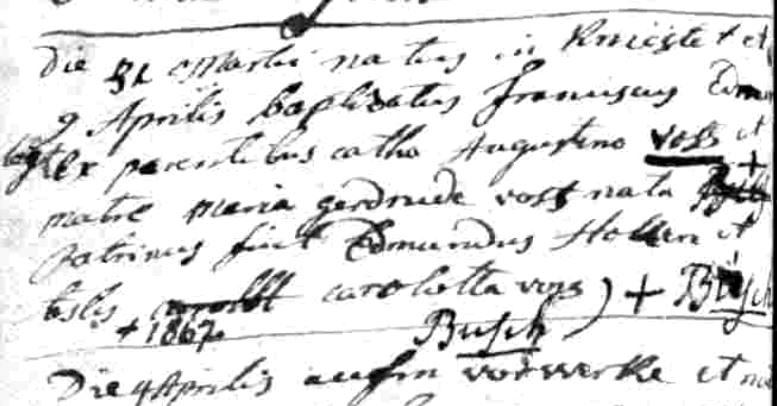 Die 31 Martii natus in Knieste + et
9 Aprilis baptizatus franciscus Edmu
ex parentibus catho Augustino voss et
matre maria gerdrude voss nata
patrinus fuit Edmundus Hollen et
testis carolotta voss ) + Busch
+ 1867 Busch
Die 9 Aprilis aufm vorwerke et